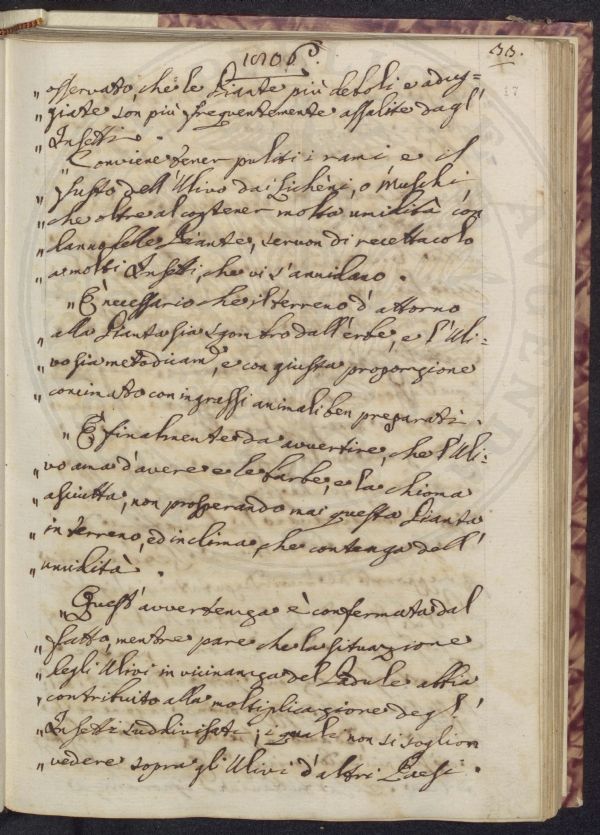 1806.
33.
17
„ osservato, che le Piante più deboli e adug=
„ giate son più frequentemente assalite dagl'
„ Insetti.
„ Conviene tener puliti i rami e il
„ fusto dell'Ulivo dai Lichèni, o Muschi,
„ che oltre al costener molta umidità con
„ danno delle Piante, servon di recettacolo
„ a molti Insetti, che vi s'annidano.
„ È necessario che il terreno d'attorno
„ alla Pianta sia sgombro dall'erbe, e l'Uli=
„ vo sia metodicam.e, e con giusta proporzione
„ concimato con ingrassi animali ben preparati.
„ È finalmente da avvertire, che l'Uli=
„ vo ama d'avere e le barbe, e la chioma
„ asciutta, non prosperando mai questa Pianta
„ in terreno, ed in clima, che contenga dell'
„ umidità.
„ Quest'avvertenza è confermata dal
„ fatto, mentre pare che la situazione
„ degli Ulivi in vicinanza del Padule abbia
„ contribuito alla moltiplicazione degl'
„ Insetti suddivisati, i quali non si soglion
„ vedere sopra gli Ulivi d'altri Paesi.